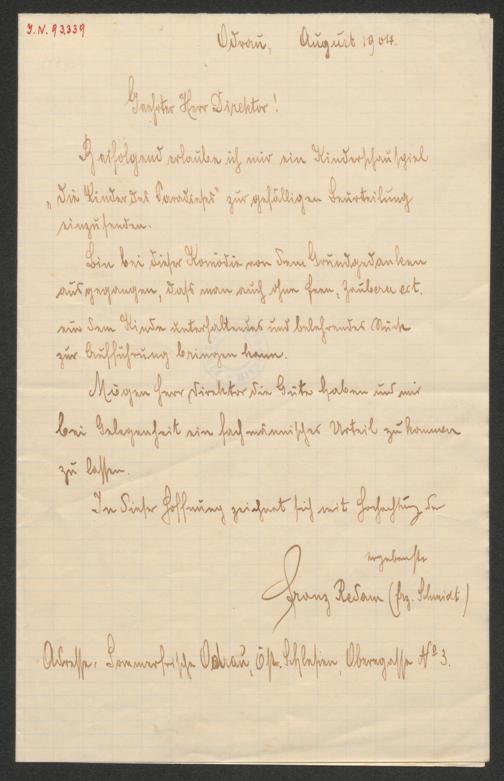 J.N. 93339
Odrau, August 1904.
Geehrter Herr Direktor!
Beifolgend erlaube ich mir ein Kinderschauspiel
„Die Kinder des Paradieses" zur gefälligen Beurteilung
einzusenden.
Bin bei dieser Komödie von dem Grundgedanken
ausgegangen, daß man auch ohne Feen, Zauberer ect.
ein dem Kinde unterhaltendes und belehrendes Stück
zur Aufführung bringen kann.
Mögen Herr Direktor die Güte haben und mir
bei Gelegenheit ein fachmännisches Urteil zu kommen
zu lassen.
In dieser Hoffnung zeichnet sich mit Hochachtung der
ergebenste
Franz Redam (Frz. Schmidt)
Adresse: Sommerfrische Odrau, Öst. Schlesien, Oberegasse No 3.